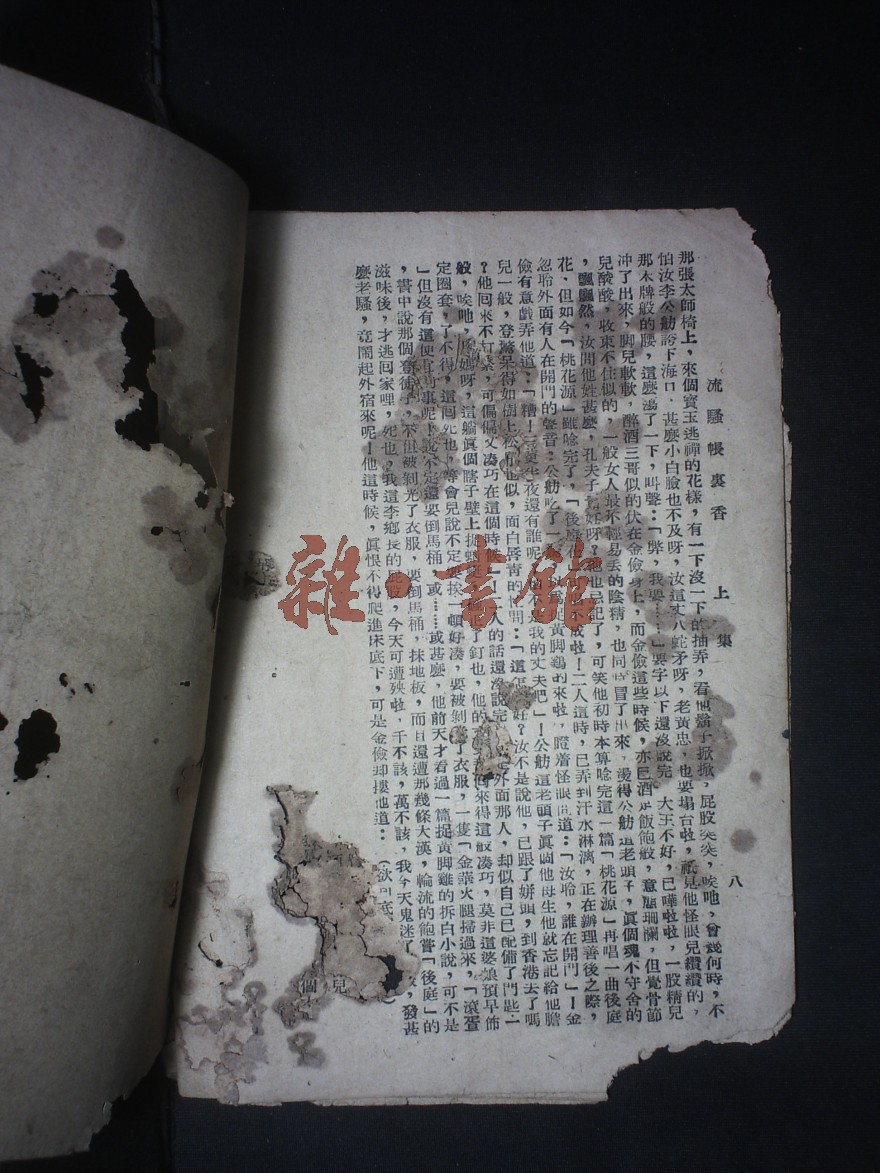 流騷帳裏香　上集　八
那張太師椅上，來個寶玉逃禪的花樣，有一下沒一下的抽弄，看他鬍子掀掀，屁股奕奕，唉吔，曾幾何時，不
怕汝李公舫誇下海口，甚麼小白臉也不及呀，汝這丈八蛇矛呀，老黃忠，也要塲台啦，祇見他怪眼兒鑽鑽的，
那木牌般的腰，這麼濁了一下，叫聲：「弊，我要……」要字以下還沒說完，大王不好，已嘩啦啦，一股精兒
冲了出來，脚兒軟軟，醉酒三哥似的伏在金儉身上，而金儉這些時候，亦已酒足飯飽般，意態珊斕，但覺骨節
兒酸酸，收束不住似的，一般女人最不輕易丢的陰精，也同時冒了出來，燙得公舫這老頭子，眞個魂不守舍的
，飄飄然，汝問他姓甚麼，孔夫子 呀？他也忘記了，可笑他初時本算唸完這一篇「桃花源」再唱一曲後庭
花，但如今「桃花源」雖唸完了，「後庭花」 不成啦！二人這時，已弄到汗水淋漓，正在辦理善後之際，
忽聆外面有人在開門的聲音，公舫吃了一 黃脚鷄的來啦，瞪着怪眼問道：「汝聆，誰在開門」！金
儉有意戲弄他道：「糟！ 夜還有誰呢 不是我的丈夫吧」！公舫這老頭子眞個他母生他就忘記給他膽
兒一般，登當呆得如樹上松 也似，面白唇靑的 問：「這怎 好？汝不是說他，已跟了姘頭，到香港去了嗎
？他回來不打緊，可偏偏又湊巧在這個時候」！ 人的話還沒說完， 外面那人，却似自己已配備了門匙一
般，唉吔，媽媽呀，這躺眞個瞎子壁上 了釘也，他的 回來得這般凑巧，莫非這婆娘預早佈
定圈套，了不得，這回死也，等會兒說不定要挨一頓好湊，要被剝 了衣服，一隻「金華火腿掃過來，「滾蛋
」但沒有這便宜的事呢！說不定還要倒馬桶，或……或甚麼，他前天才看過一篇捉黃脚雞的拆白小說，可不是
，書中說那個 徒子，不但被剝光了衣服，要倒馬桶，抹地板，而且還遭那幾條大漢，輪流的飽嘗「後庭」的
滋味後，才逃回家哩，死也，我這李鄕長的屁股，今天可遭殃啦，千不該，萬不該，我今天鬼迷了 ，發甚
麼老騷，竟鬧起外宿來呢！他這時候，眞恨不得爬進床底下，可是金儉却摟他道：（欲
個兒
雜·書館